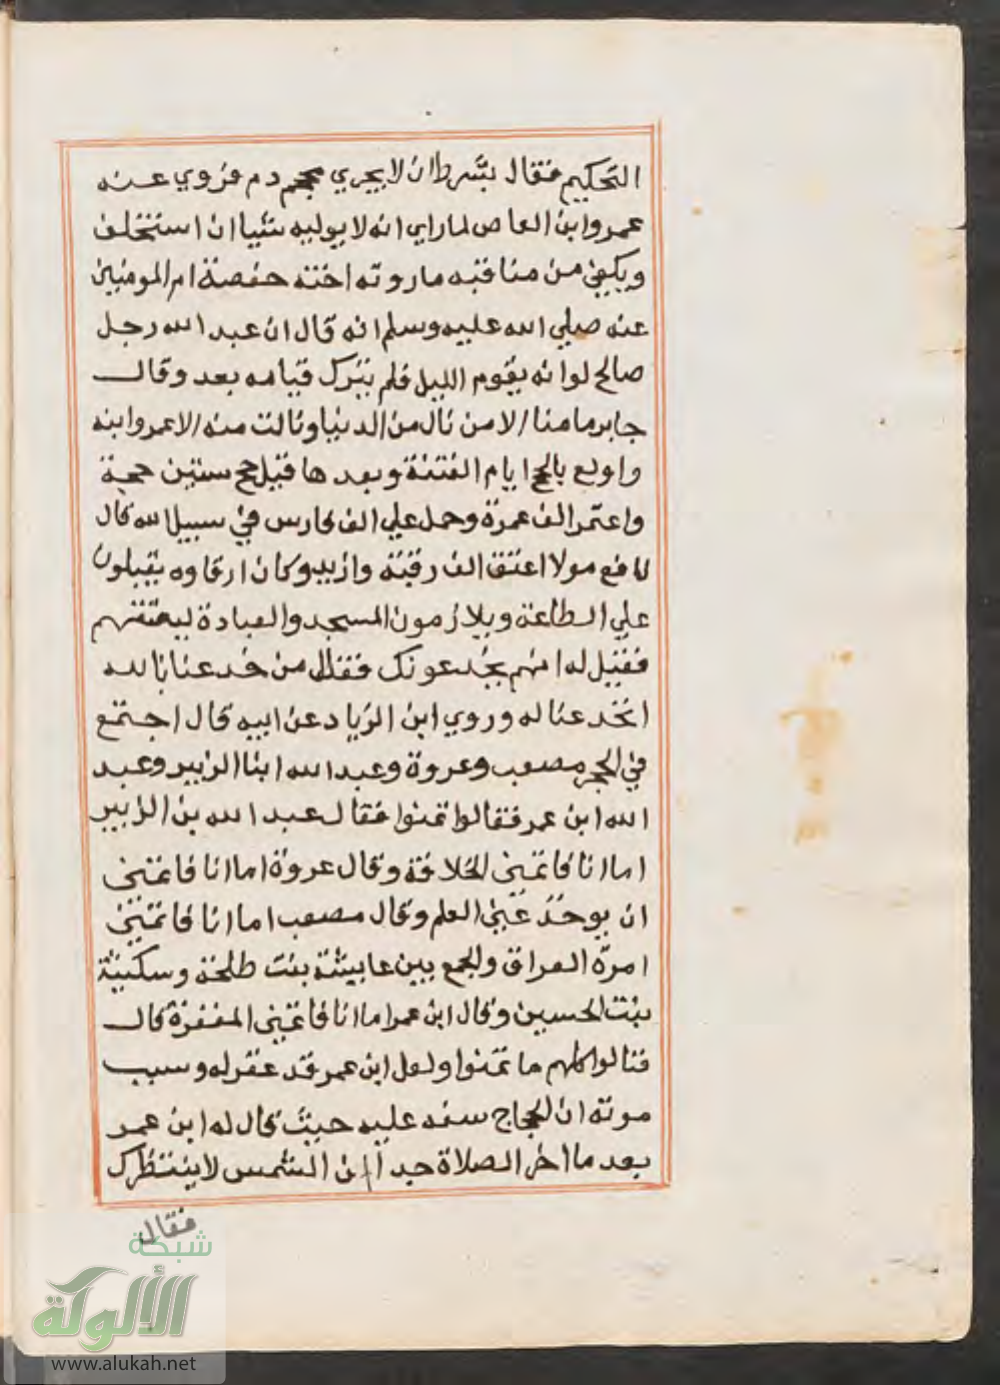 التحكيم فقال بشرط ان لا يجري محجم دم فزوي عنه
عمرو ابن العاص لما راي انه لا يوليه شيا ان استخلف
ويكفي من مناقبه ما روته اخته حفصة ام المومنين
عنه صلي الله عليه وسلم انه قال ان عبد الله رجل
صالح لو انه يقوم الليل فلم يترك قيامه بعد وقال
جابر ما منا الا من نال من الدنيا ونالت منه الا عمر وابنه
واولع بالحج ايام الفتنة وبعدها قيل حج ستين حجة
واعتمر الف عمرة وحمل علي الف فارس في سبيل الله قال
نافع مولا اعتق الف رقبة وازيد وكان ارقاوه يقبلون
علي الطاعة ويلازمون المسجد والعبادة ليعتقهم
فقيل له انهم يخدعونك فقال من خدعنا بالله
انخدعنا له وروي ابن الزياد عن ابيه قال اجتمع
في الحجر مصعب وعروة وعبد الله ابنا الزبير وعبد
الله ابن عمر فقالوا تمنوا فقال عبد الله بن الزبير
اما انا فاتمني الخلافة وقال عروة اما انا فاتمني
ان يوخذ عني العلم وقال مصعب اما انا فاتمني
امرة العراق والجمع بين عايشة بنت طلحة وسكينة
بنت الحسين وقال ابن عمر اما انا فاتمني المغفرة قال
فنالوا كلهم ما تمنوا ولعل ابن عمر قد غفر له وسبب
موته ان الحجاج سفه عليه حيث قال له ابن عمر
بعد ما اخر الصلاة جدا ان الشمس لا ينتظرك
فقال
شبكة
الألوكة
www.alukah.net